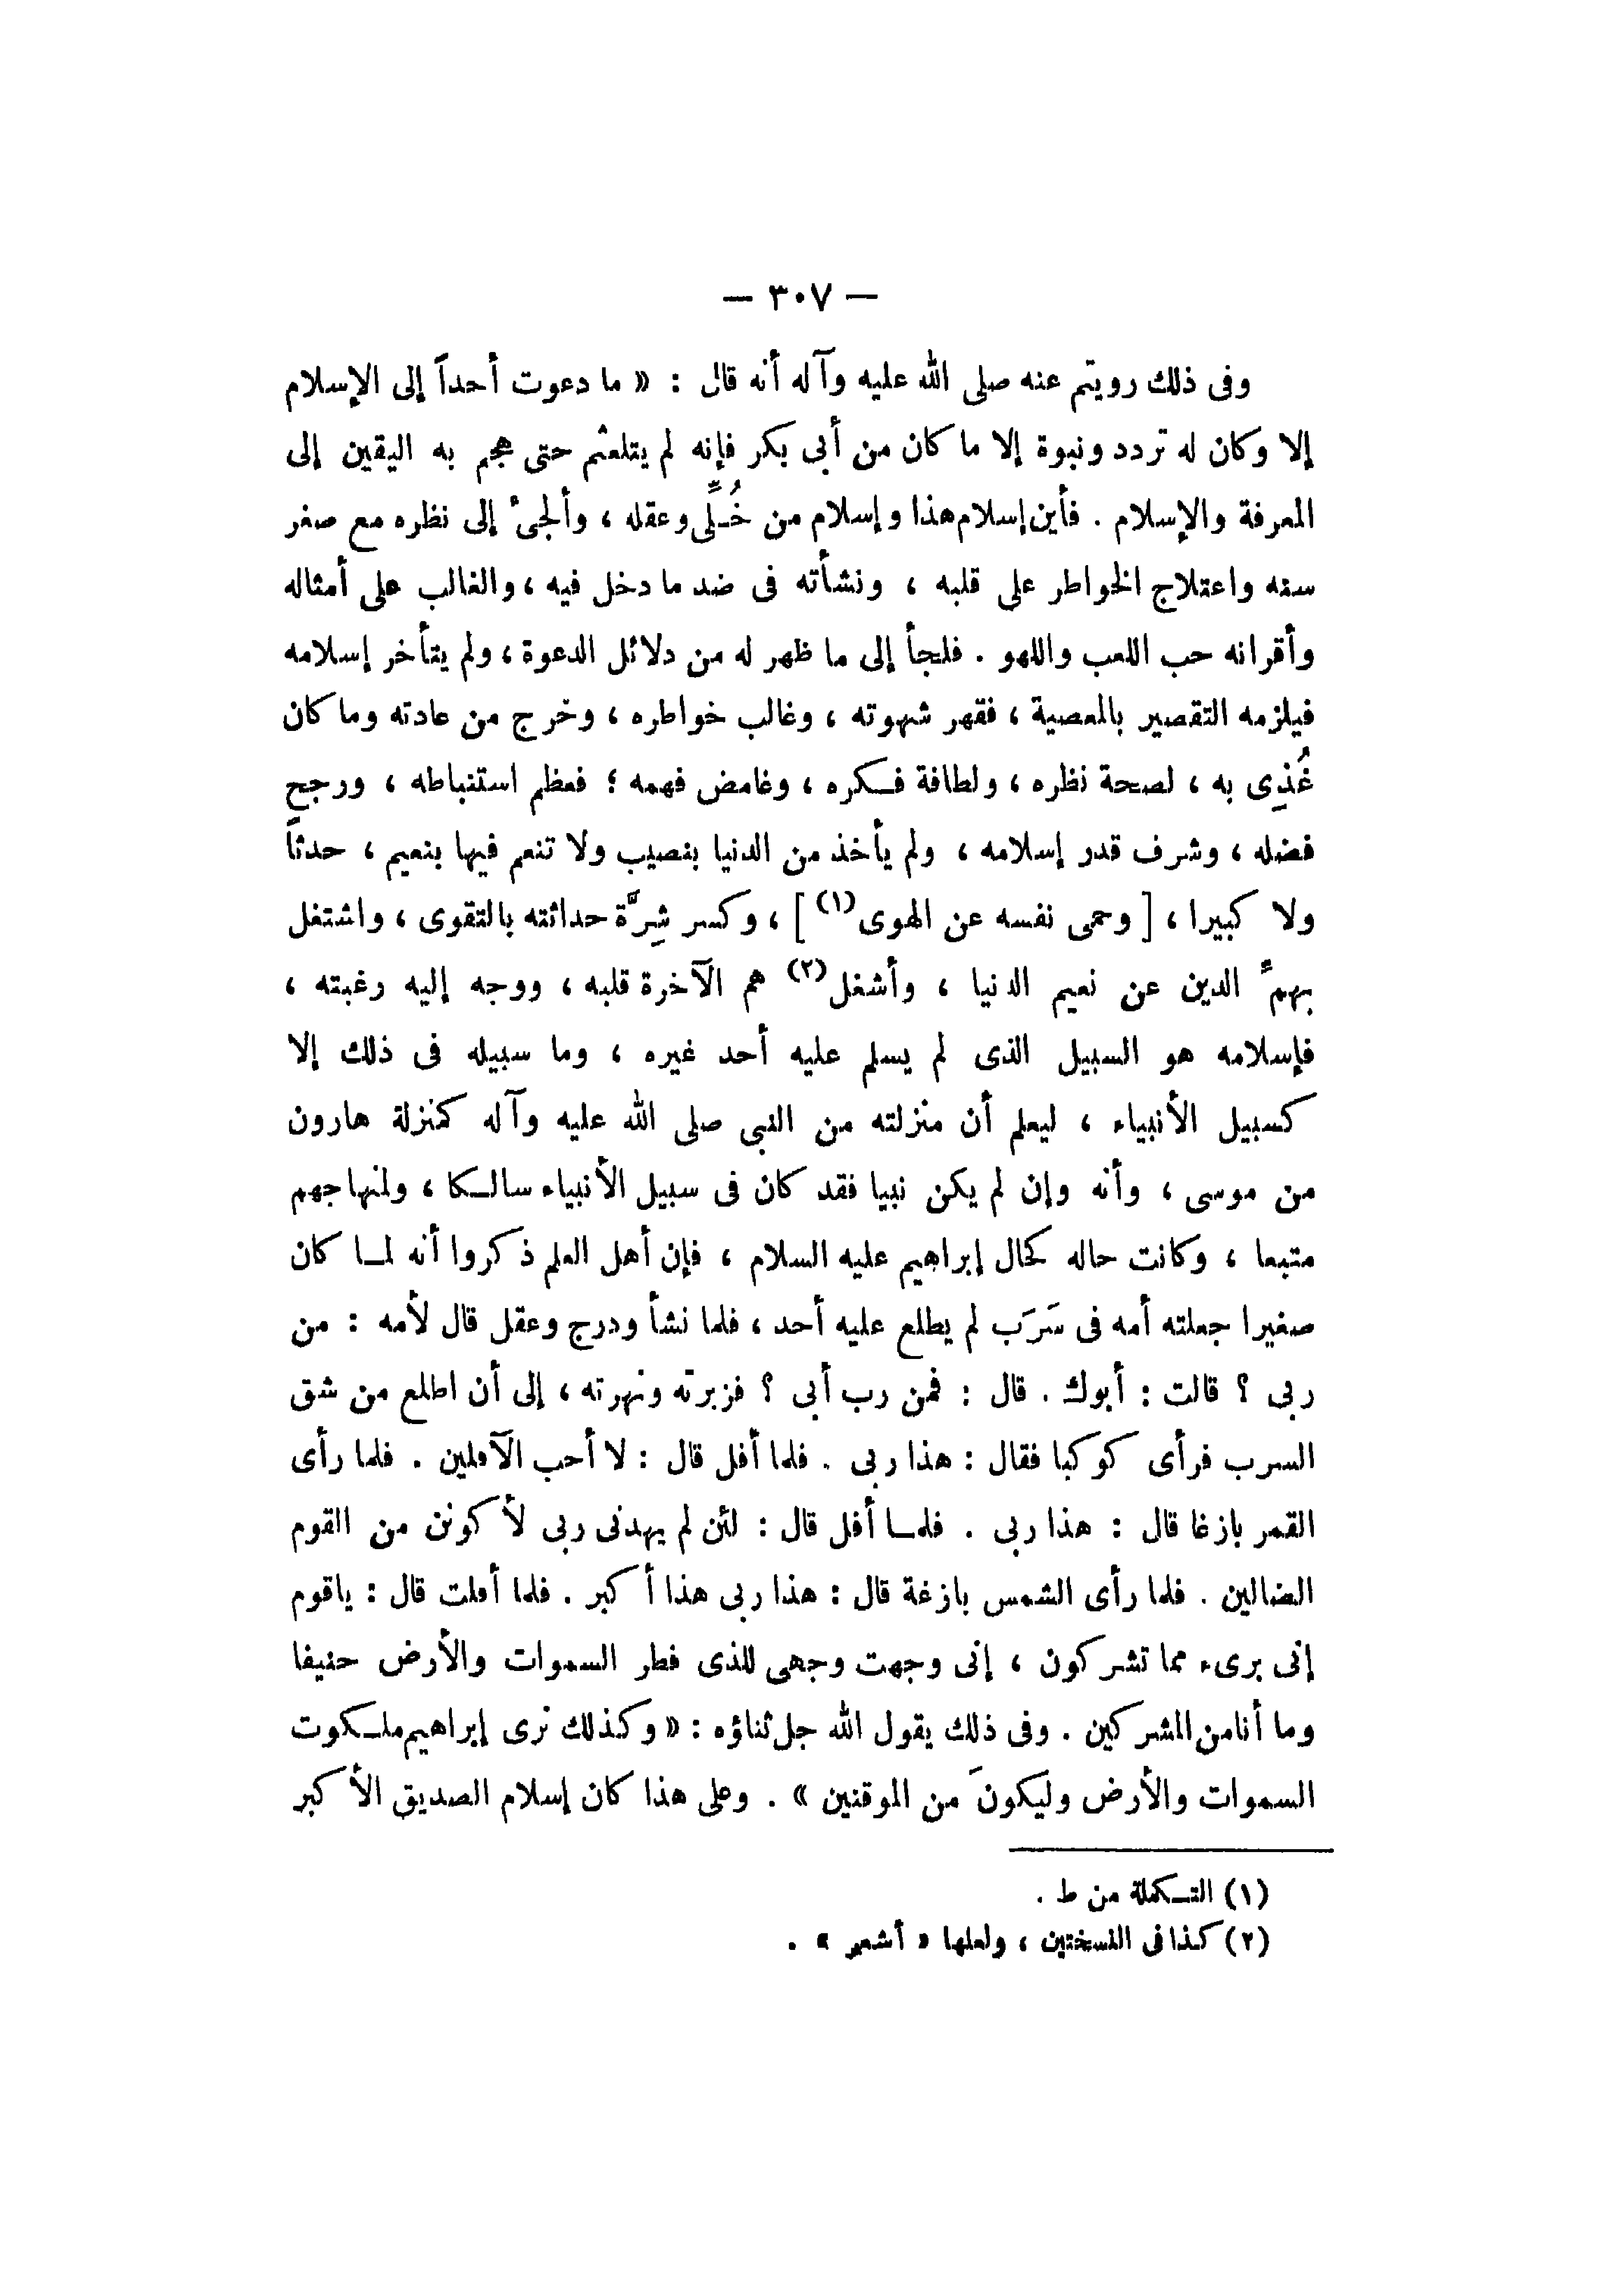 — ٣٠٧ —
وفى ذلك رويتم عنه صلى الله عليه وآله أنه قال : « ما دعوت أحداً إلى الإسلام
إلا وكان له تردد ونبوة إلا ما كان من أبى بكر فإنه لم يتلعثم حتى هجم به اليقين إلى
المعرفة والإسلام . فأين إسلام هذا وإسلام من خُلِّى وعقله ، وألجئ إلى نظره مع صغر
سنه واعتلاج الخواطر على قلبه ، ونشأته فى ضد ما دخل فيه ، والغالب على أمثاله
وأقرانه حب اللعب واللهو . فلجأ إلى ما ظهر له من دلائل الدعوة ، ولم يتأخر إسلامه
فيلزمه التقصير بالمعصية ، فقهر شهوته ، وغالب خواطره ، وخرج من عادته وما كان
غُذِى به ، لصحة نظره ، ولطافة فكره ، وغامض فهمه ؛ فعظم استنباطه ، ورجح
فضله ، وشرف قدر إسلامه ، ولم يأخذ من الدنيا بنصيب ولا تنعم فيها بنعيم ، حدثاً
ولا كبيرا ، [ وحمى نفسه عن الهوى (١) ] ، وكسر شِرَّة حداثته بالتقوى ، واشتغل
بهمِّ الدين عن نعيم الدنيا ، وأشغل (٢) هم الآخرة قلبه ، ووجه إليه رغبته ،
فإسلامه هو السبيل الذى لم يسلم عليه أحد غيره ، وما سبيله فى ذلك إلا
كسبيل الأنبياء ، ليعلم أن منزلته من النبى صلى الله عليه وآله كمنزلة هارون
من موسى ، وأنه وإن لم يكن نبيا فقد كان فى سبيل الأنبياء سالكا ، ولمنهاجهم
متبعا ، وكانت حاله كحال إبراهيم عليه السلام ، فإن أهل العلم ذكروا أنه لما كان
صغيرا جعلته أمه فى سَرَب لم يطلع عليه أحد ، فلما نشأ ودرج وعقل قال لأمه : من
ربى ؟ قالت : أبوك . قال : فمن رب أبى ؟ فزبرته ونهرته ، إلى أن اطلع من شق
السرب فرأى كوكبا فقال : هذا ربى . فلما أفل قال : لا أحب الآفلين . فلما رأى
القمر بازغا قال : هذا ربى . فلما أفل قال : لئن لم يهدنى ربى لأكونن من القوم
الضالين . فلما رأى الشمس بازغة قال : هذا ربى هذا أكبر . فلما أفلت قال : ياقوم
إنى برىء مما تشركون ، إنى وجهت وجهى للذى فطر السموات والأرض حنيفا
وما أنا من المشركين . وفى ذلك يقول الله جل ثناؤه : « وكذلك نرى إبراهيم ملكوت
السموات والأرض وليكونَ من الموقنين » . وعلى هذا كان إسلام الصديق الأكبر
(١) التكملة من ط .
(٢) كذا فى النسختين ، ولعلها « أشعر » .